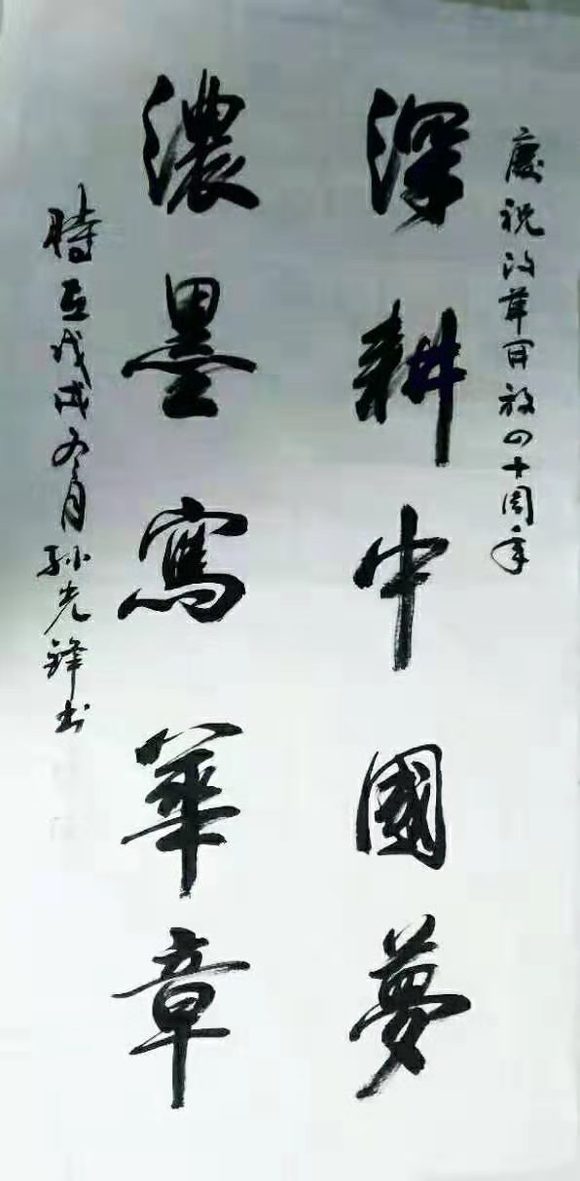 慶祝改革開放四十周年
深耕中國夢
濃墨寫華章
時在戊戌冬月孫先鋒書